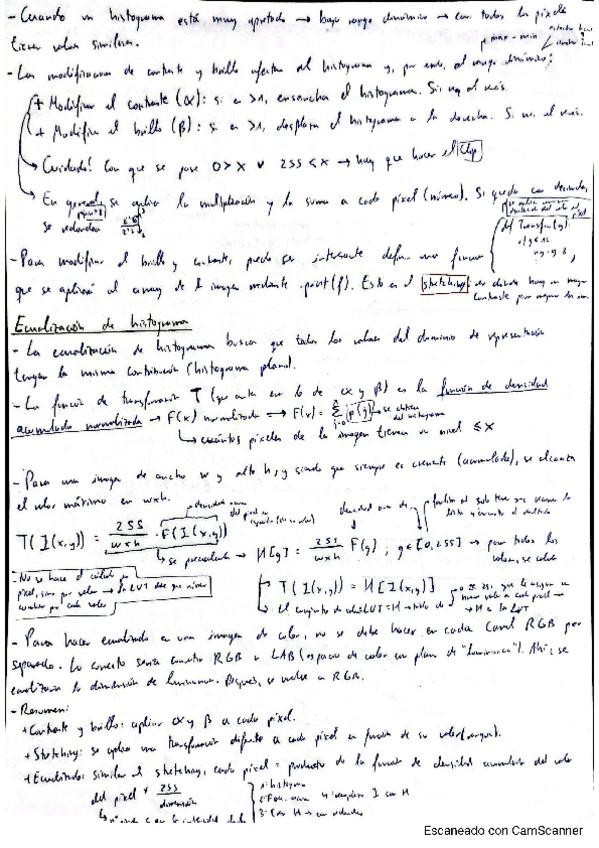 - Cuando un histograma está muy apretado → bajo rango dinámico → casi todos los píxeles
tienen valores similares.
- Las modificaciones de contraste y brillo afectan al histograma y, por ende, al rango dinámico:
+ Modificar el contraste (α): si es >1, ensancha el histograma. Si no, al revés.
+ Modificar el brillo (β): si es >1, desplaza el histograma a la derecha. Si no, al revés.
→ Cuidado! Con que se pase 0 > x v 255 < x → hay que hacer el clip
→ En general, se aplica la multiplicación y la suma a cada píxel (número). Si queda con decimales,
se redondea
- Para modificar el brillo y contraste, puede ser interesante definir una función
que se aplicará al array de la imagen mediante .point(f). Esto es el stretching
Ecualización de histograma
- La ecualización de histograma busca que todos los valores del dominio de representación
tengan la misma contribución (histograma plano).
- La función de transformación T (que actúa en lo de α y β) es la función de densidad
acumulada normalizada → F(x) normalizada ⟹ F(x) = Σ p(g) → se obtiene del histograma
↳ cuántos píxeles de la imagen tienen un nivel ≤ x
- Para una imagen de ancho w y alto h, y siendo que siempre es creciente (acumulada), se alcanza
el valor máximo en wxh.
T(I(x,y)) = 255/wxh · F(I(x,y))
↳ se precalcula → H[g] = 255/wxh F(g), g∈[0,255] → para todos los valores, se calcula
- No se hace el cálculo por
píxel, sino por valor → la LUT
T(I(x,y)) = H[I(x,y)]
- Para hacer ecualizado en una imagen de color, no se debe hacer en cada canal RGB por
separado. Lo correcto sería convertir RGB a LAB (espacio de color en plan de "luminancia"). Ahí, se
ecualizaría la dimensión de luminancia. Después, se vuelve a RGB.
- Resumen:
+ Contraste y brillo: aplicar α y β a cada píxel.
+ Stretching: se aplica una transformación diferente a cada píxel en función de su valor (rangos).
+ Ecualizado: similar al stretching, cada píxel = producto de la función de densidad acumulada del valor
del píxel * 255/dimensión
1º histograma
Escaneado con CamScanner